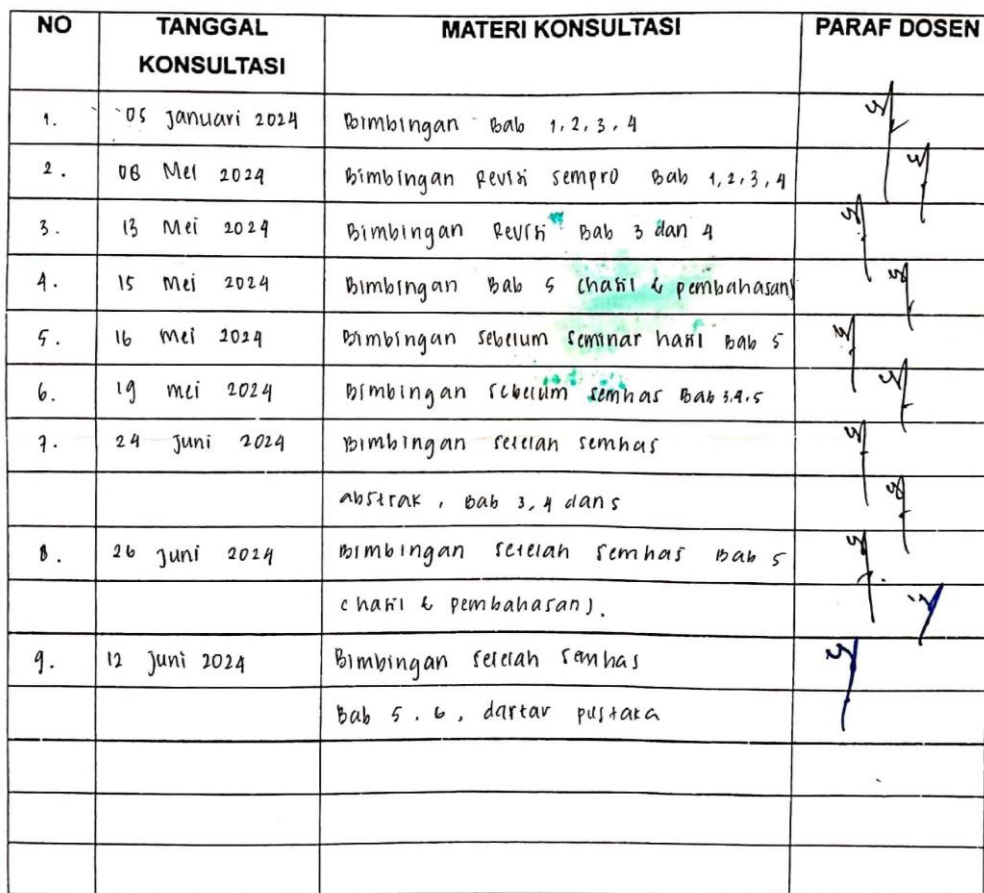 NO TANGGAL KONSULTASI MATERI KONSULTASI PARAF DOSEN
1. 05 Januari 2024 Bimbingan Bab 1, 2, 3, 4
2. 08 Mei 2024 Bimbingan Revisi sempro Bab 1, 2, 3, 4
3. 13 Mei 2024 Bimbingan Revisi Bab 3 dan 4
4. 15 Mei 2024 Bimbingan Bab 5 (hasil & pembahasan)
5. 16 Mei 2024 Bimbingan sebelum seminar hasil Bab 5
6. 19 Mei 2024 Bimbingan sebelum semhas Bab 3.4.5
7. 24 Juni 2024 Bimbingan setelah semhas
abstrak, Bab 3, 4 dan 5
8. 26 Juni 2024 Bimbingan setelah semhas Bab 5
(hasil & pembahasan).
9. 12 Juni 2024 Bimbingan setelah semhas
Bab 5, 6, daftar pustaka